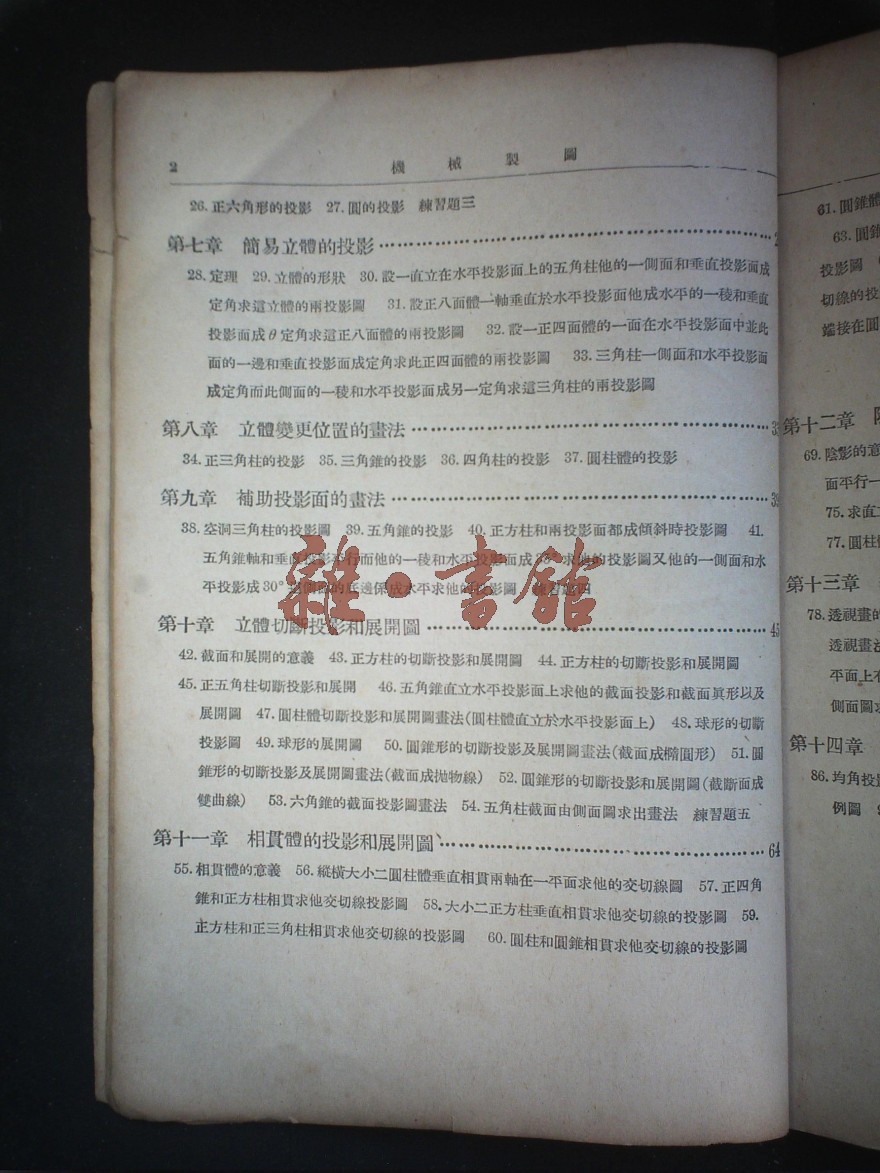 2 機械製圖
26. 正六角形的投影 27. 圓的投影 練習題三
第七章 簡易立體的投影
28. 定理 29. 立體的形狀 30. 設一直立在水平投影面上的五角柱他的一側面和垂直投影面成
定角求這立體的兩投影圖 31. 設正八面體一軸垂直於水平投影面他成水平的一稜和垂直
投影面成θ定角求這正八面體的兩投影圖 32. 設一正四面體的一面在水平投影面中並此
面的一邊和垂直投影面成定角求此正四面體的兩投影圖 33. 三角柱一側面和水平投影面
成定角而此側面的一稜和水平投影面成另一定角求這三角柱的兩投影圖
第八章 立體變更位置的畫法
34. 正三角柱的投影 35. 三角錐的投影 36. 四角柱的投影 37. 圓柱體的投影
第九章 補助投影面的畫法 39
38. 空洞三角柱的投影圖 39. 五角錐的投影 40. 正方柱和兩投影面都成傾斜時投影圖 41.
五角錐軸和垂直投影平行而他的一稜和水平投影面成 求他的投影圖又他的一側面和水
平投影成30° 的底邊係成水平求他的投影圖 練習題四
第十章 立體切斷投影和展開圖 45
42. 截面和展開的意義 43. 正方柱的切斷投影和展開圖 44. 正方柱的切斷投影和展開圖
45. 正五角柱切斷投影和展開 46. 五角錐直立水平投影面上求他的截面投影和截面眞形以及
展開圖 47. 圓柱體切斷投影和展開圖畫法(圓柱體直立於水平投影面上) 48. 球形的切斷
投影圖 49. 球形的展開圖 50. 圓錐形的切斷投影及展開圖畫法(截面成橢圓形) 51. 圓
錐形的切斷投影及展開圖畫法(截面成拋物線) 52. 圓錐形的切斷投影和展開圖(截斷面成
雙曲線) 53. 六角錐的截面投影圖畫法 54. 五角柱截面由側面圖求出畫法 練習題五
第十一章 相貫體的投影和展開圖 64
55. 相貫體的意義 56. 縱橫大小二圓柱體垂直相貫兩軸在一平面求他的交切線圖 57. 正四角
錐和正方柱相貫求他交切線投影圖 58. 大小二正方柱垂直相貫求他交切線的投影圖 59.
正方柱和正三角柱相貫求他交切線的投影圖 60. 圓柱和圓錐相貫求他交切線的投影圖
雜·書館
61. 圓錐體
63. 圓錐
投影圖
切線的投
端接在圓
第十二章
69. 陰影的意
面平行一
75. 求直立
77. 圓柱體
第十三章
78. 透視畫的
透視畫法
平面上不
側面圖求
第十四章
86. 均角投影
例圖